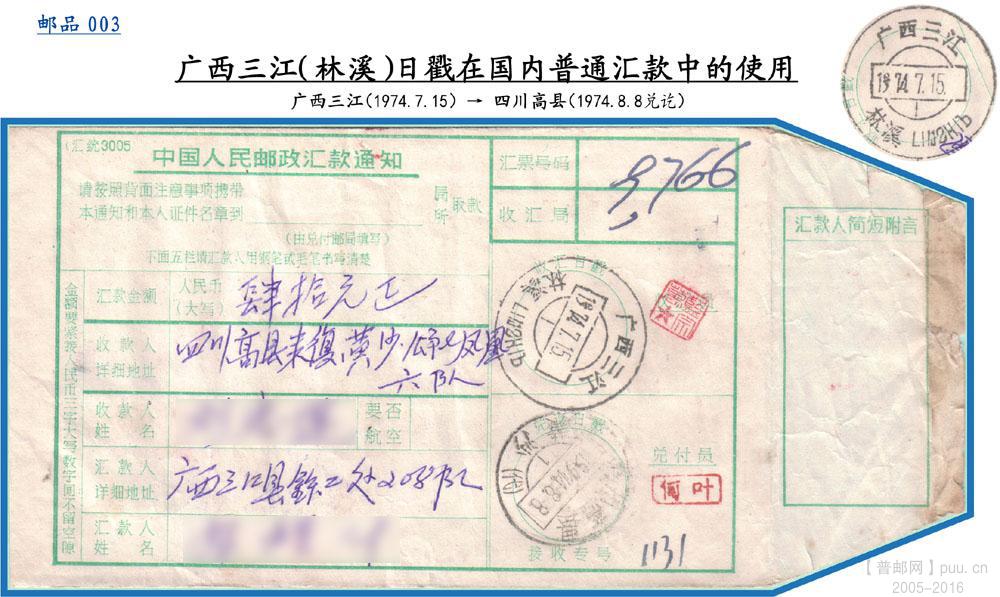 邮品 003
广西三江(林溪)日戳在国内普通汇款中的使用
广西三江(1974.7.15) → 四川高县(1974.8.8兑讫)
广西三江
1974.7.15.
林溪
(汇统3005
中国人民邮政汇款通知
请按照背面注意事项携带
本通知和本人证件名章到
局
所
取款
(由兑付邮局填写)
下面五栏请汇款人用钢笔或毛笔书写清楚
汇票号码
9766
收汇局
汇款人简短附言
汇款金额
人民币
(大写)
肆拾元正
收款人
详细地址
四川高县来復黄沙公社凤凰
六队
收款人
姓名
要否
航空
汇款人
详细地址
汇款人
姓名
林溪
1974.7.15
广西三江
兑付员
何叶
接收专局
1131
【普邮网】puu.cn
2005-2016